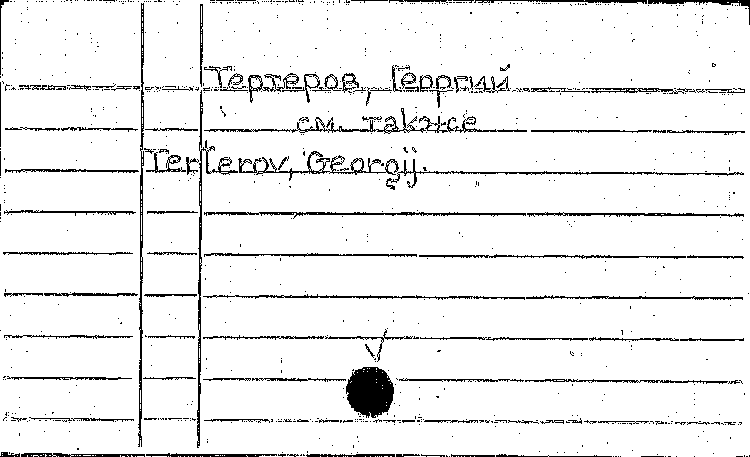 Тертеров, Георгий
см. также
Terterov, Georgij.